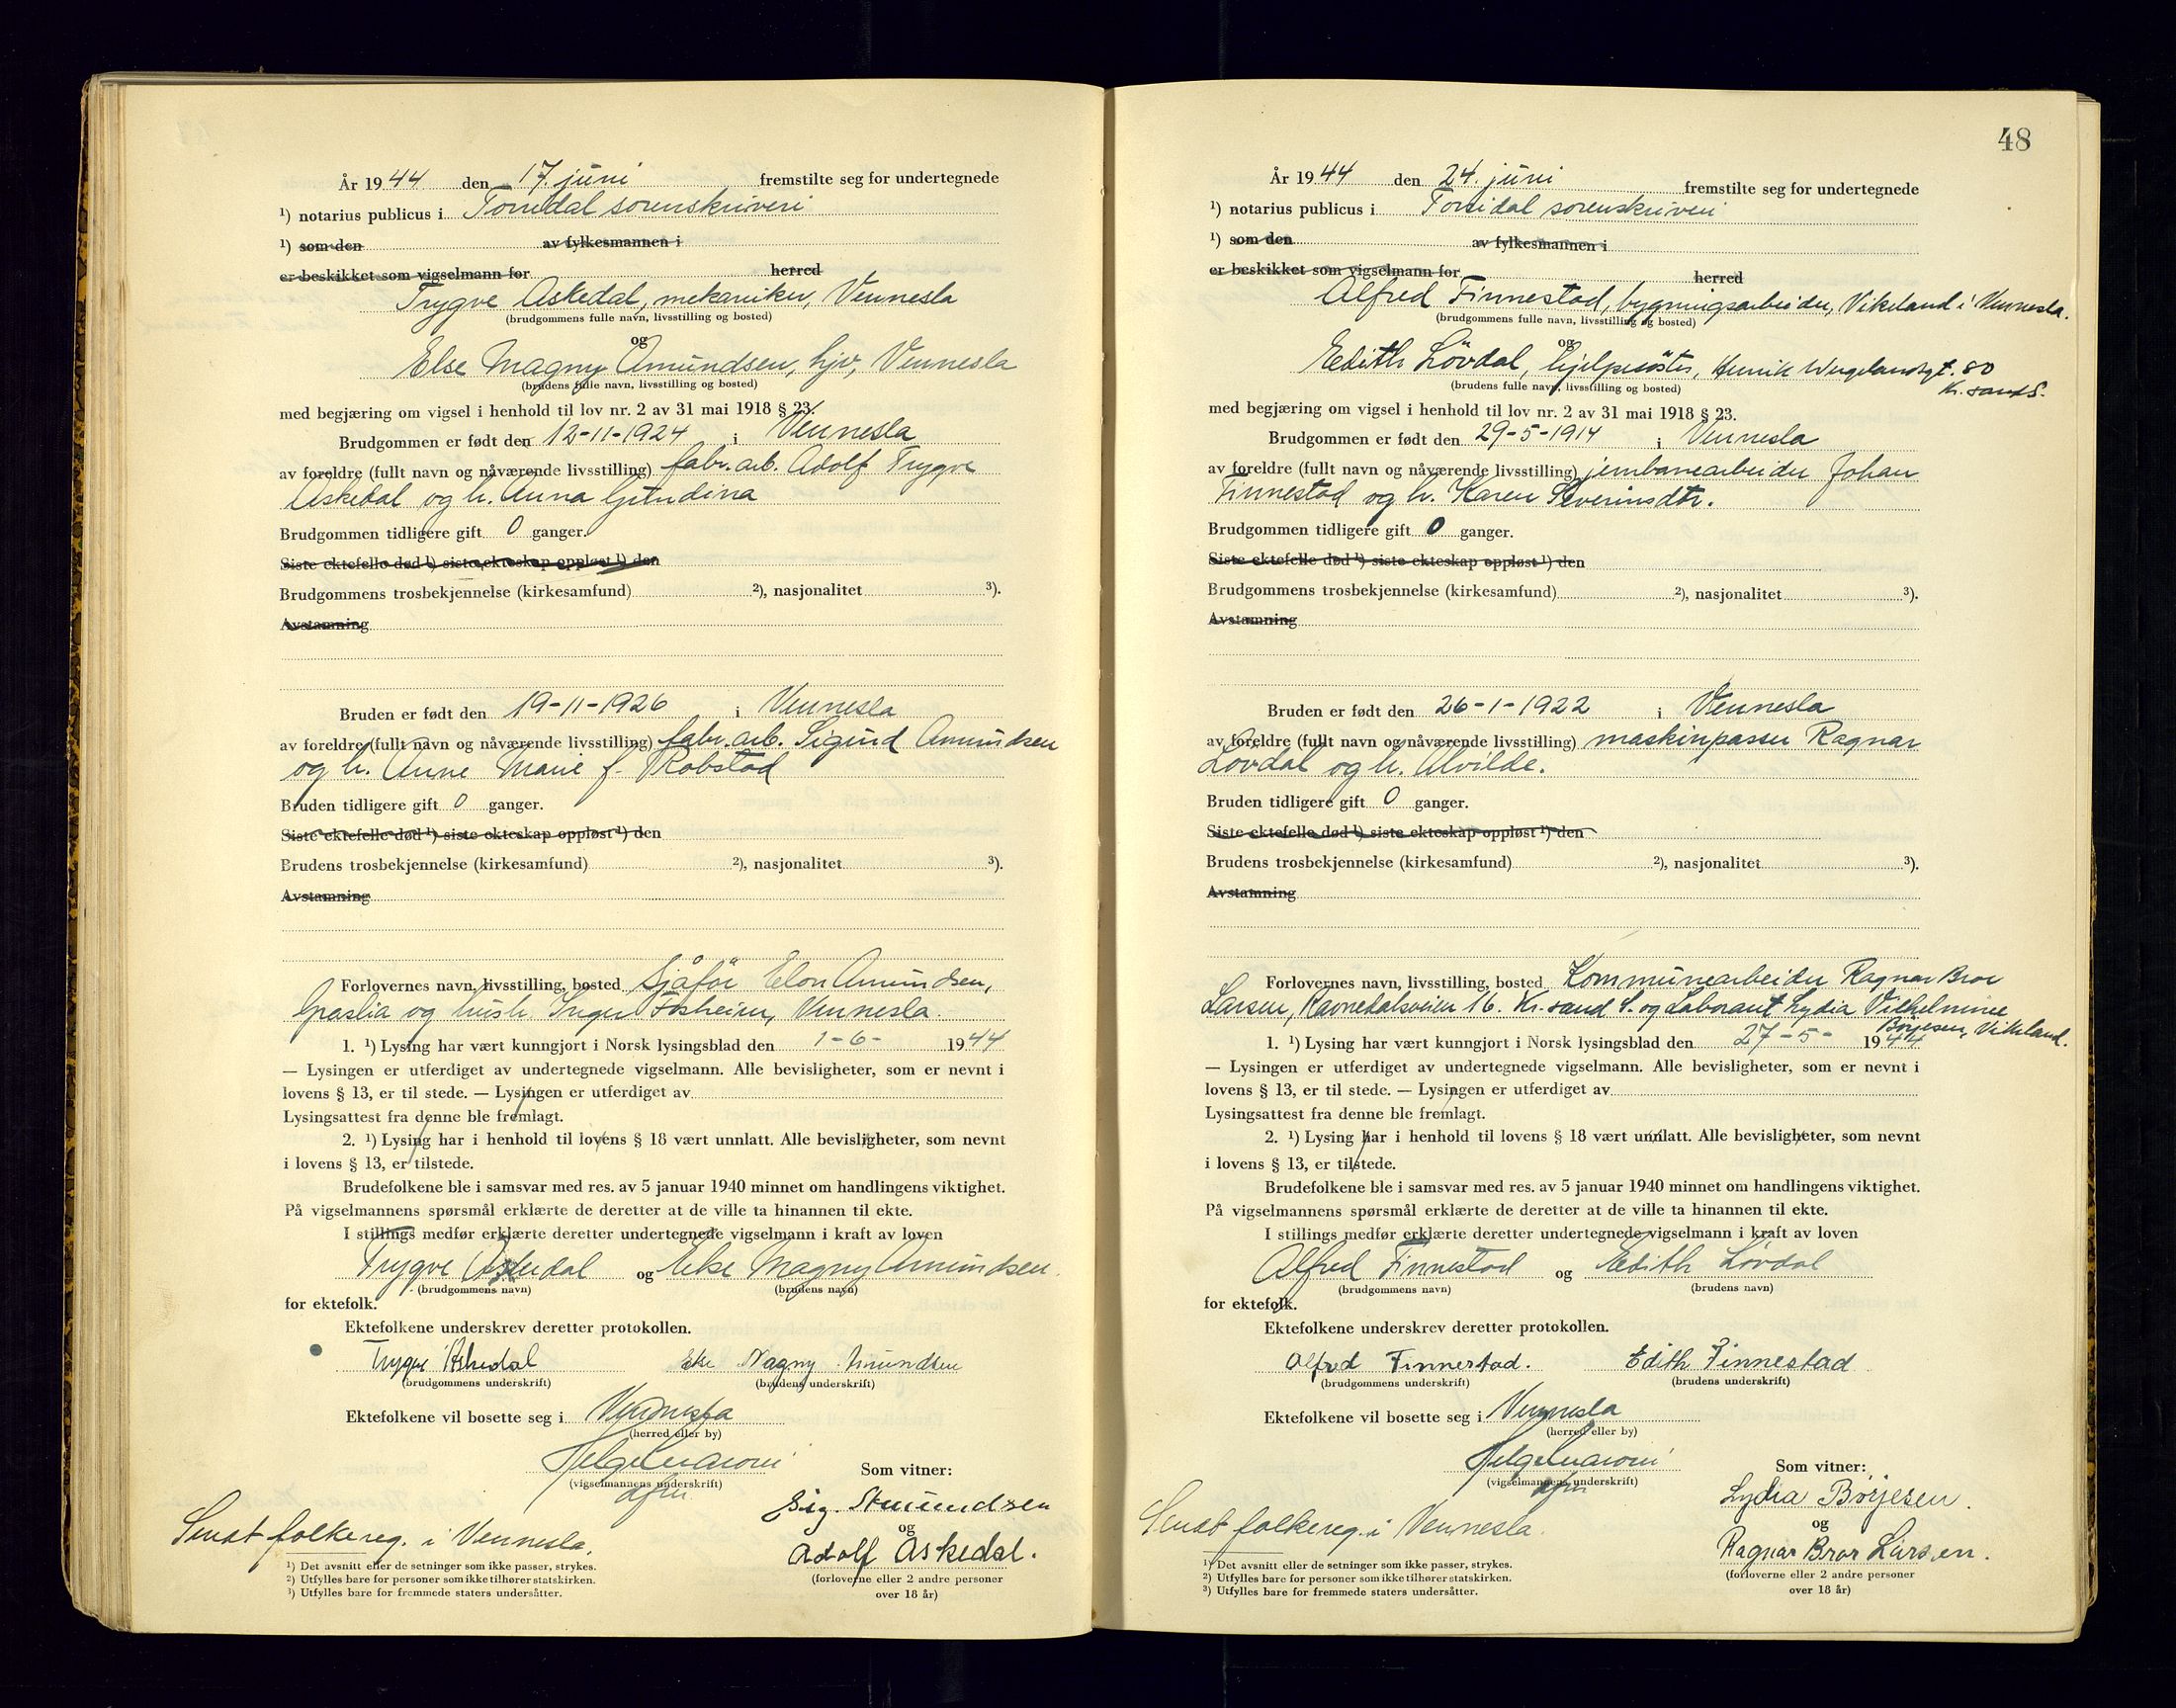 År 1944 den 17. juni fremstilte seg for undertegnede
¹) notarius publicus i Torridal sorenskriveri
¹) som den av fylkesmannen i
er beskikket som vigselmann for herred
Trygve Askedal, mekaniker, Vennesla
(brudgommens fulle navn, livsstilling og bosted)
og
Else Magny Amundsen, hjv, Vennesla
(brudens fulle navn, livsstilling og bosted)
med begjæring om vigsel i henhold til lov nr. 2 av 31 mai 1918 § 23.
Brudgommen er født den 12-11-1924 i Vennesla
av foreldre (fullt navn og nåværende livsstilling) fabr.arb. Adolf Trygve
Askedal og h. Anna Gundina
Brudgommen tidligere gift 0 ganger.
Siste ektefelle død ¹) siste ekteskap oppløst ¹) den
Brudgommens trosbekjennelse (kirkesamfund) ²), nasjonalitet ³).
Avstamning
Bruden er født den 19-11-1926 i Vennesla
av foreldre (fullt navn og nåværende livsstilling) fabr.arb. Sigurd Amundsen
og h. Anne Marie f. Robstad
Bruden tidligere gift 0 ganger.
Siste ektefelle død ¹) siste ekteskap oppløst ¹) den
Brudens trosbekjennelse (kirkesamfund) ²), nasjonalitet ³).
Avstamning
Forlovernes navn, livsstilling, bosted Sjåför Elon Amundsen,
Graslia og hush. Inger Fosheim, Vennesla.
1. ¹) Lysing har vært kunngjort i Norsk lysingsblad den 1-6- 1944
— Lysingen er utferdiget av undertegnede vigselmann. Alle bevisligheter, som er nevnt i
lovens § 13, er til stede. — Lysingen er utferdiget av
Lysingsattest fra denne ble fremlagt.
2. ¹) Lysing har i henhold til lovens § 18 vært unnlatt. Alle bevisligheter, som nevnt
i lovens § 13, er tilstede.
Brudefolkene ble i samsvar med res. av 5 januar 1940 minnet om handlingens viktighet.
På vigselmannens spørsmål erklærte de deretter at de ville ta hinannen til ekte.
I stillings medfør erklærte deretter undertegnede vigselmann i kraft av loven
Trygve Askedal og Else Magny Amundsen
(brudgommens navn) (brudens navn)
for ektefolk.
Ektefolkene underskrev deretter protokollen.
Trygve Askedal Else Magny Amundsen
(brudgommens underskrift) (brudens underskrift)
Ektefolkene vil bosette seg i Vennesla
(herred eller by)
(vigselmannens underskrift)
Som vitner:
Sig. Amundsen
og
Adolf Askedal.
(forloverne eller 2 andre personer
over 18 år)
Sendt folkereg. i Vennesla.
¹) Det avsnitt eller de setninger som ikke passer, strykes.
²) Utfylles bare for personer som ikke tilhører statskirken.
³) Utfylles bare for fremmede staters undersåtter.
48
År 1944 den 24. juni fremstilte seg for undertegnede
¹) notarius publicus i Torridal sorenskriveri
¹) som den av fylkesmannen i
er beskikket som vigselmann for herred
Alfred Finnestad, bygningsarbeider, Vikeland i Vennesla.
(brudgommens fulle navn, livsstilling og bosted)
og
Edith Lövdal, hjelpesöster, Henrik Wergelandsgt. 80
Kr.sand S.
(brudens fulle navn, livsstilling og bosted)
med begjæring om vigsel i henhold til lov nr. 2 av 31 mai 1918 § 23.
Brudgommen er født den 29-5-1914 i Vennesla
av foreldre (fullt navn og nåværende livsstilling) jernbanearbeider Johan
Finnestad og h. Karen Severinsdtr.
Brudgommen tidligere gift 0 ganger.
Siste ektefelle død ¹) siste ekteskap oppløst ¹) den
Brudgommens trosbekjennelse (kirkesamfund) ²), nasjonalitet ³).
Avstamning
Bruden er født den 26-1-1922 i Vennesla
av foreldre (fullt navn og nåværende livsstilling) maskinpasser Ragnar
Lövdal og h. Alvilde.
Bruden tidligere gift 0 ganger.
Siste ektefelle død ¹) siste ekteskap oppløst ¹) den
Brudens trosbekjennelse (kirkesamfund) ²), nasjonalitet ³).
Avstamning
Forlovernes navn, livsstilling, bosted Kommunearbeider Ragnar Bror
Larsen, Ravnedalsveien 16. Kr.sand S. og Laborant Lydia Vilhelmine
Börjesen, Vikeland.
1. ¹) Lysing har vært kunngjort i Norsk lysingsblad den 27-5- 1944
— Lysingen er utferdiget av undertegnede vigselmann. Alle bevisligheter, som er nevnt i
lovens § 13, er til stede. — Lysingen er utferdiget av
Lysingsattest fra denne ble fremlagt.
2. ¹) Lysing har i henhold til lovens § 18 vært unnlatt. Alle bevisligheter, som nevnt
i lovens § 13, er tilstede.
Brudefolkene ble i samsvar med res. av 5 januar 1940 minnet om handlingens viktighet.
På vigselmannens spørsmål erklærte de deretter at de ville ta hinannen til ekte.
I stillings medfør erklærte deretter undertegnede vigselmann i kraft av loven
Alfred Finnestad og Edith Lövdal
(brudgommens navn) (brudens navn)
for ektefolk.
Ektefolkene underskrev deretter protokollen.
Alfred Finnestad. Edith Finnestad
(brudgommens underskrift) (brudens underskrift)
Ektefolkene vil bosette seg i Vennesla
(herred eller by)
(vigselmannens underskrift)
Som vitner:
Lydia Börjesen.
og
Ragnar Bror Larsen.
(forloverne eller 2 andre personer
over 18 år)
Sendt folkereg. i Vennesla.
¹) Det avsnitt eller de setninger som ikke passer, strykes.
²) Utfylles bare for personer som ikke tilhører statskirken.
³) Utfylles bare for fremmede staters undersåtter.